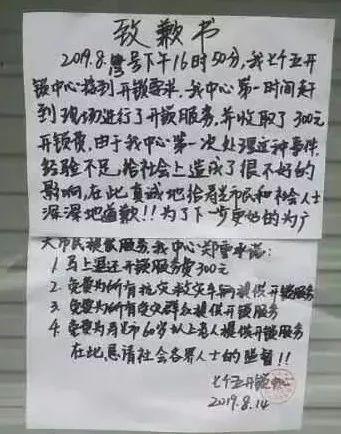 致歉书
2019.8.号下午16时50分,我七个五开
锁中心接到开锁要求,我中心第一时间赶
到现场进行了开锁服务,并收取了300元
开锁费,由于我中心第一次处理这种事件
经验不足,给社会上造成了很不好的
影响,在此真诚地给寿光市民和社会人士
深深地道歉!!为了下一步更好的为广
大市民提供服务,我中心郑重承诺:
1 马上退还开锁服务费300元
2 免费为所有抗灾救灾车辆提供开锁服务
3 免费为所有受灾群众提供开锁服务
4 免费为寿光市60岁以上老人提供开锁服务
在此,恳请社会各界人士的监督!!
七个五开锁中心
2019.8.14